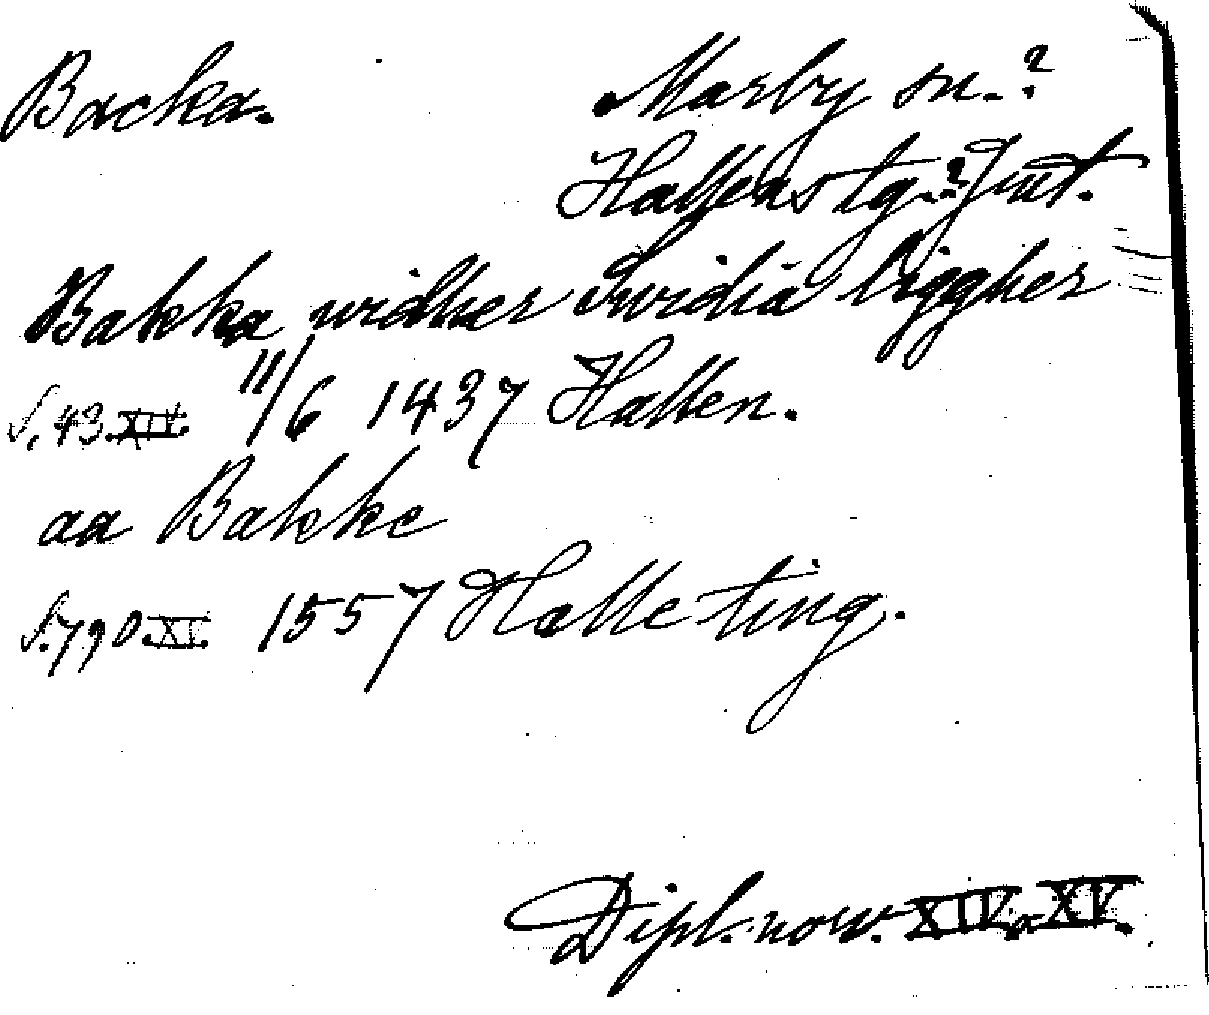 Backa. Marby sn.?
Hallens tg.? Jmt.
Bakka widher Swidia liggher
S. 43. XIV. 11/6 1437 Hallen.
aa Bakke
S. 790. XI. 1557 Halle ting.
Dipl. norv. XIV. XV.